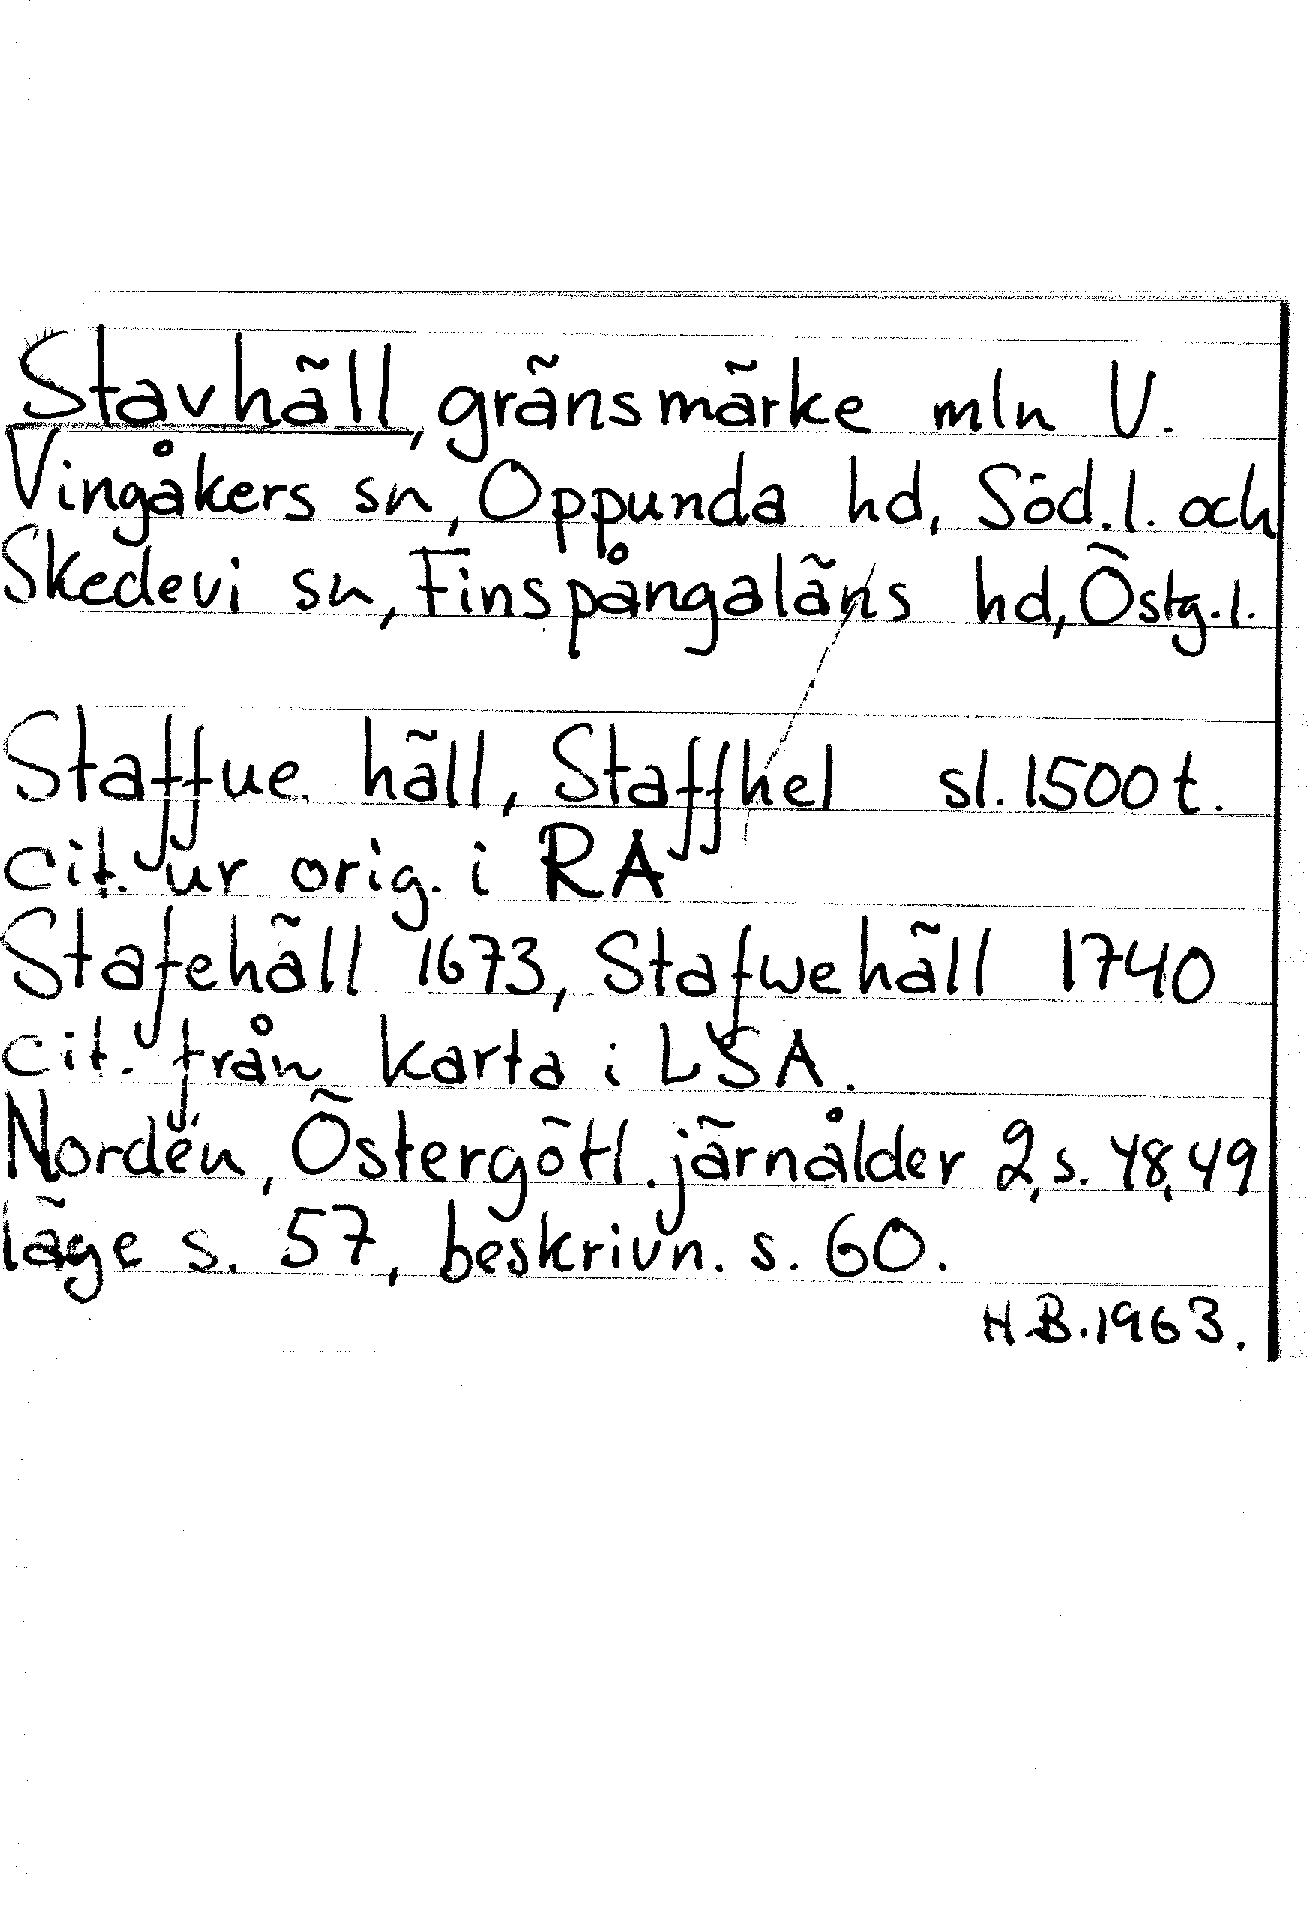 Stavhäll, gränsmärke mln V.
Vingåkers sn, Oppunda hd, Söd.l. och
Skedevi sn, Finspångaläns hd, Östg.l.
Staffue häll, Staffhel sl. 1500 t.
cit. ur orig. i RA
Stafehäll 1673, Stafwehäll 1740
cit. från karta i LSA.
Nordén, Östergötl. järnålder 2, s. 48,49
läge s. 57, beskrivn. s. 60.
H.B. 1963.